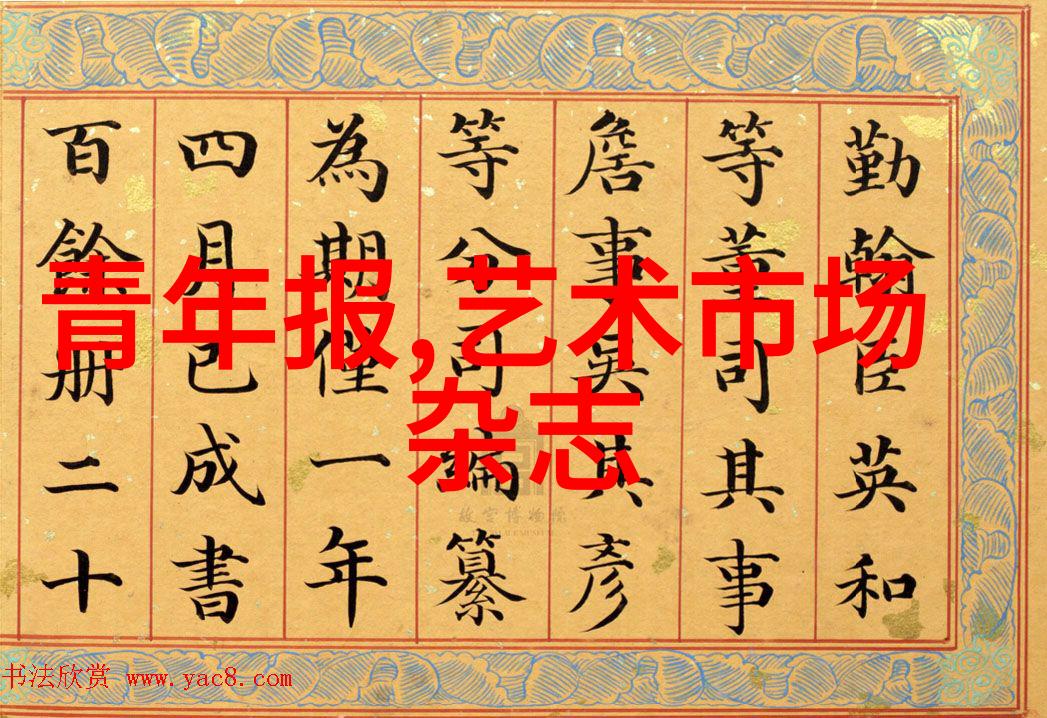 勤翰臣英和
等董司其事
詹事吳其彥
等分司編纂
為期僅一年
四月已成書
百餘冊二十
青年报,艺术市场
杂志
故宫博物院
书法欣赏 www.yac8.com